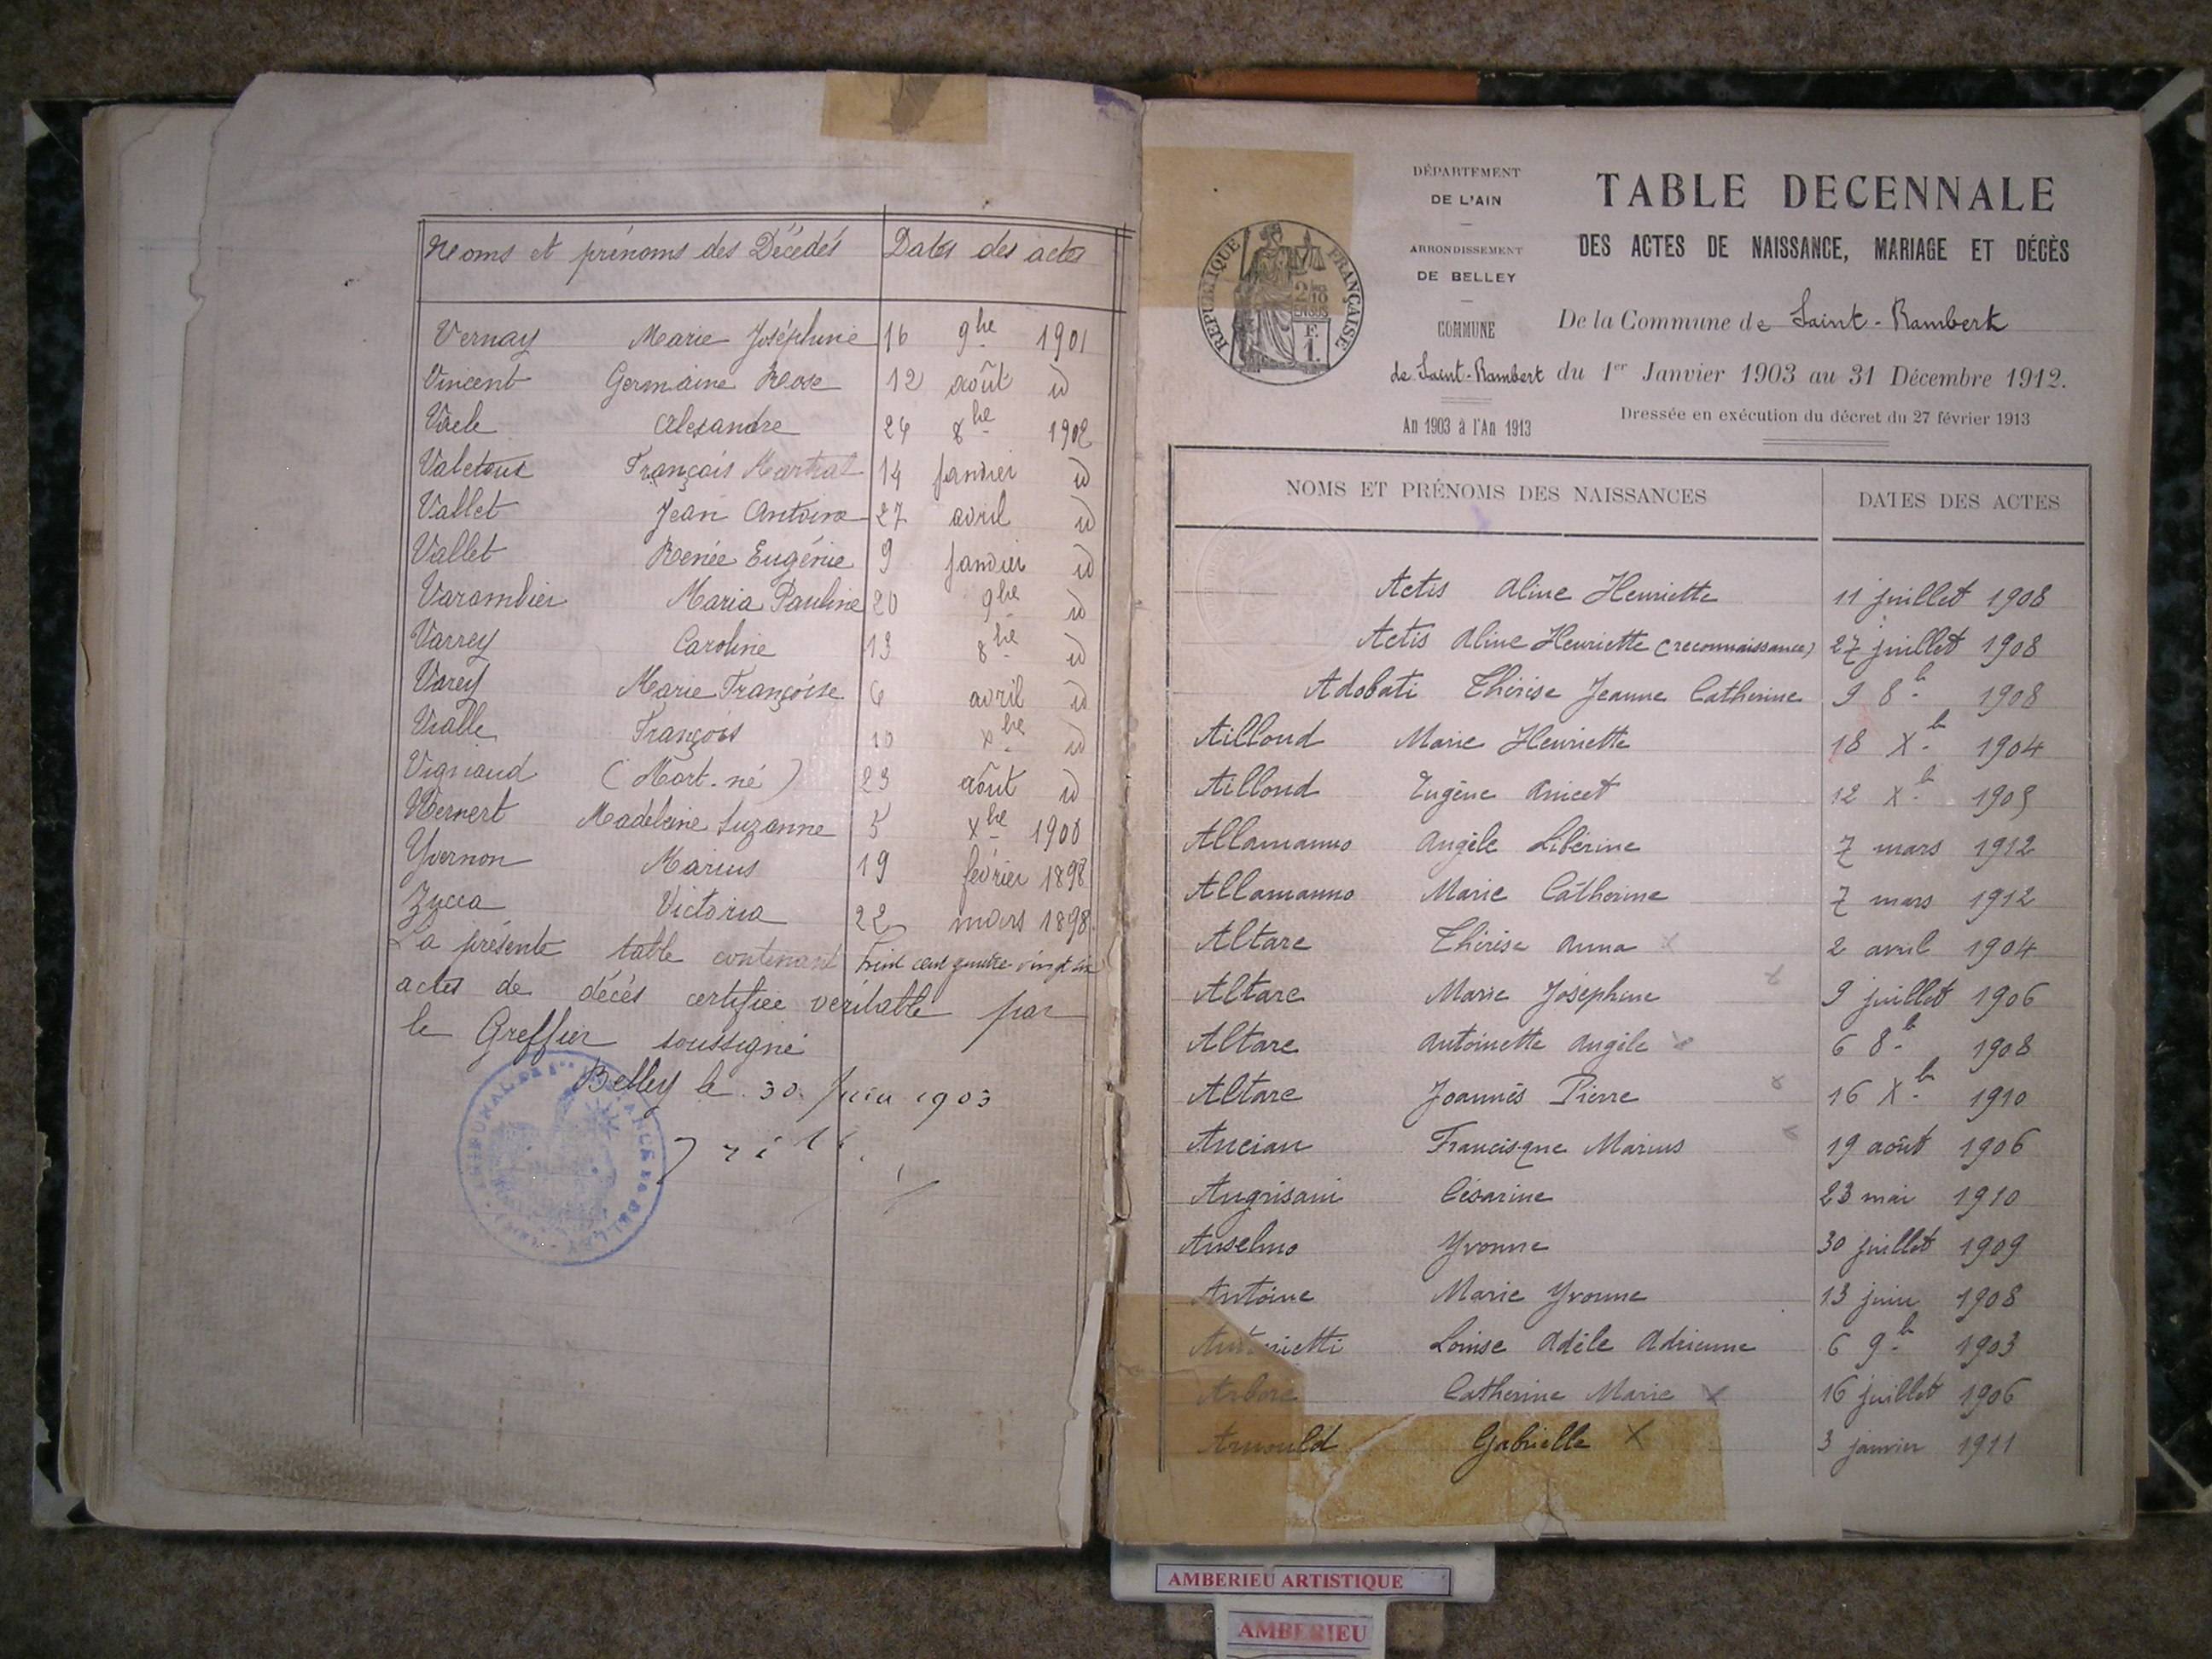 Noms et prénoms des Décédés Dates des actes
Vernay Marie Joséphine 16 9bre 1901
Vincent Germaine Rose 12 août id
Alexandre 24 8bre 1902
François 14 janvier id
Vallet Jean Antoine 27 avril id
Vallet Renée Eugénie 9 janvier id
Varambier Maria Pauline 20 9bre id
Varrey Caroline 13 8bre id
Varey Marie Françoise 6 avril id
Vialle François 10 xbre id
Vignaud (Mort-né) 23 août id
Madeleine Suzanne 5 xbre 1900
Yvernon Marius 19 février 1898
Zucca Victoria 22 mars 1898
La présente table contenant cent quatre vingt
actes de décès certifiée véritable par
le Greffier soussigné
Belley le 30 Juin 1903
DÉPARTEMENT
DE L'AIN
ARRONDISSEMENT
DE BELLEY
COMMUNE
de Saint-Rambert
An 1903 à l'An 1913
RÉPUBLIQUE FRANÇAISE
2/10
EN SUS
F.
1.
TABLE DECENNALE
DES ACTES DE NAISSANCE, MARIAGE ET DÉCÈS
De la Commune de Saint-Rambert
du 1er Janvier 1903 au 31 Décembre 1912.
Dressée en exécution du décret du 27 février 1913
NOMS ET PRÉNOMS DES NAISSANCES DATES DES ACTES
Actis Aline Henriette 11 juillet 1908
Actis Aline Henriette (reconnaissance) 27 juillet 1908
Adobati Thérèse Jeanne Catherine 9 8b 1908
Ailloud Marie Henriette 18 Xb 1904
Ailloud Eugène Anicet 12 Xb 1905
Allamanno Angèle Libérine 7 mars 1912
Allamanno Marie Catherine 7 mars 1912
Altare Thérèse Anna x 2 avril 1904
Altare Marie Joséphine x 9 juillet 1906
Altare Antoinette Angèle x 6 8b 1908
Altare Joannès Pierre x 16 Xb 1910
Ancian Francisque Marius x 19 août 1906
Angrisani Césarine 23 mai 1910
Anselmo Yvonne 30 juillet 1909
Antoine Marie Yvonne 13 juin 1908
Antonietti Louise Adèle Adrienne 6 9b 1903
Arbore Catherine Marie x 16 juillet 1906
Arnould Gabrielle X 3 janvier 1911
AMBERIEU ARTISTIQUE
AMBERIEU